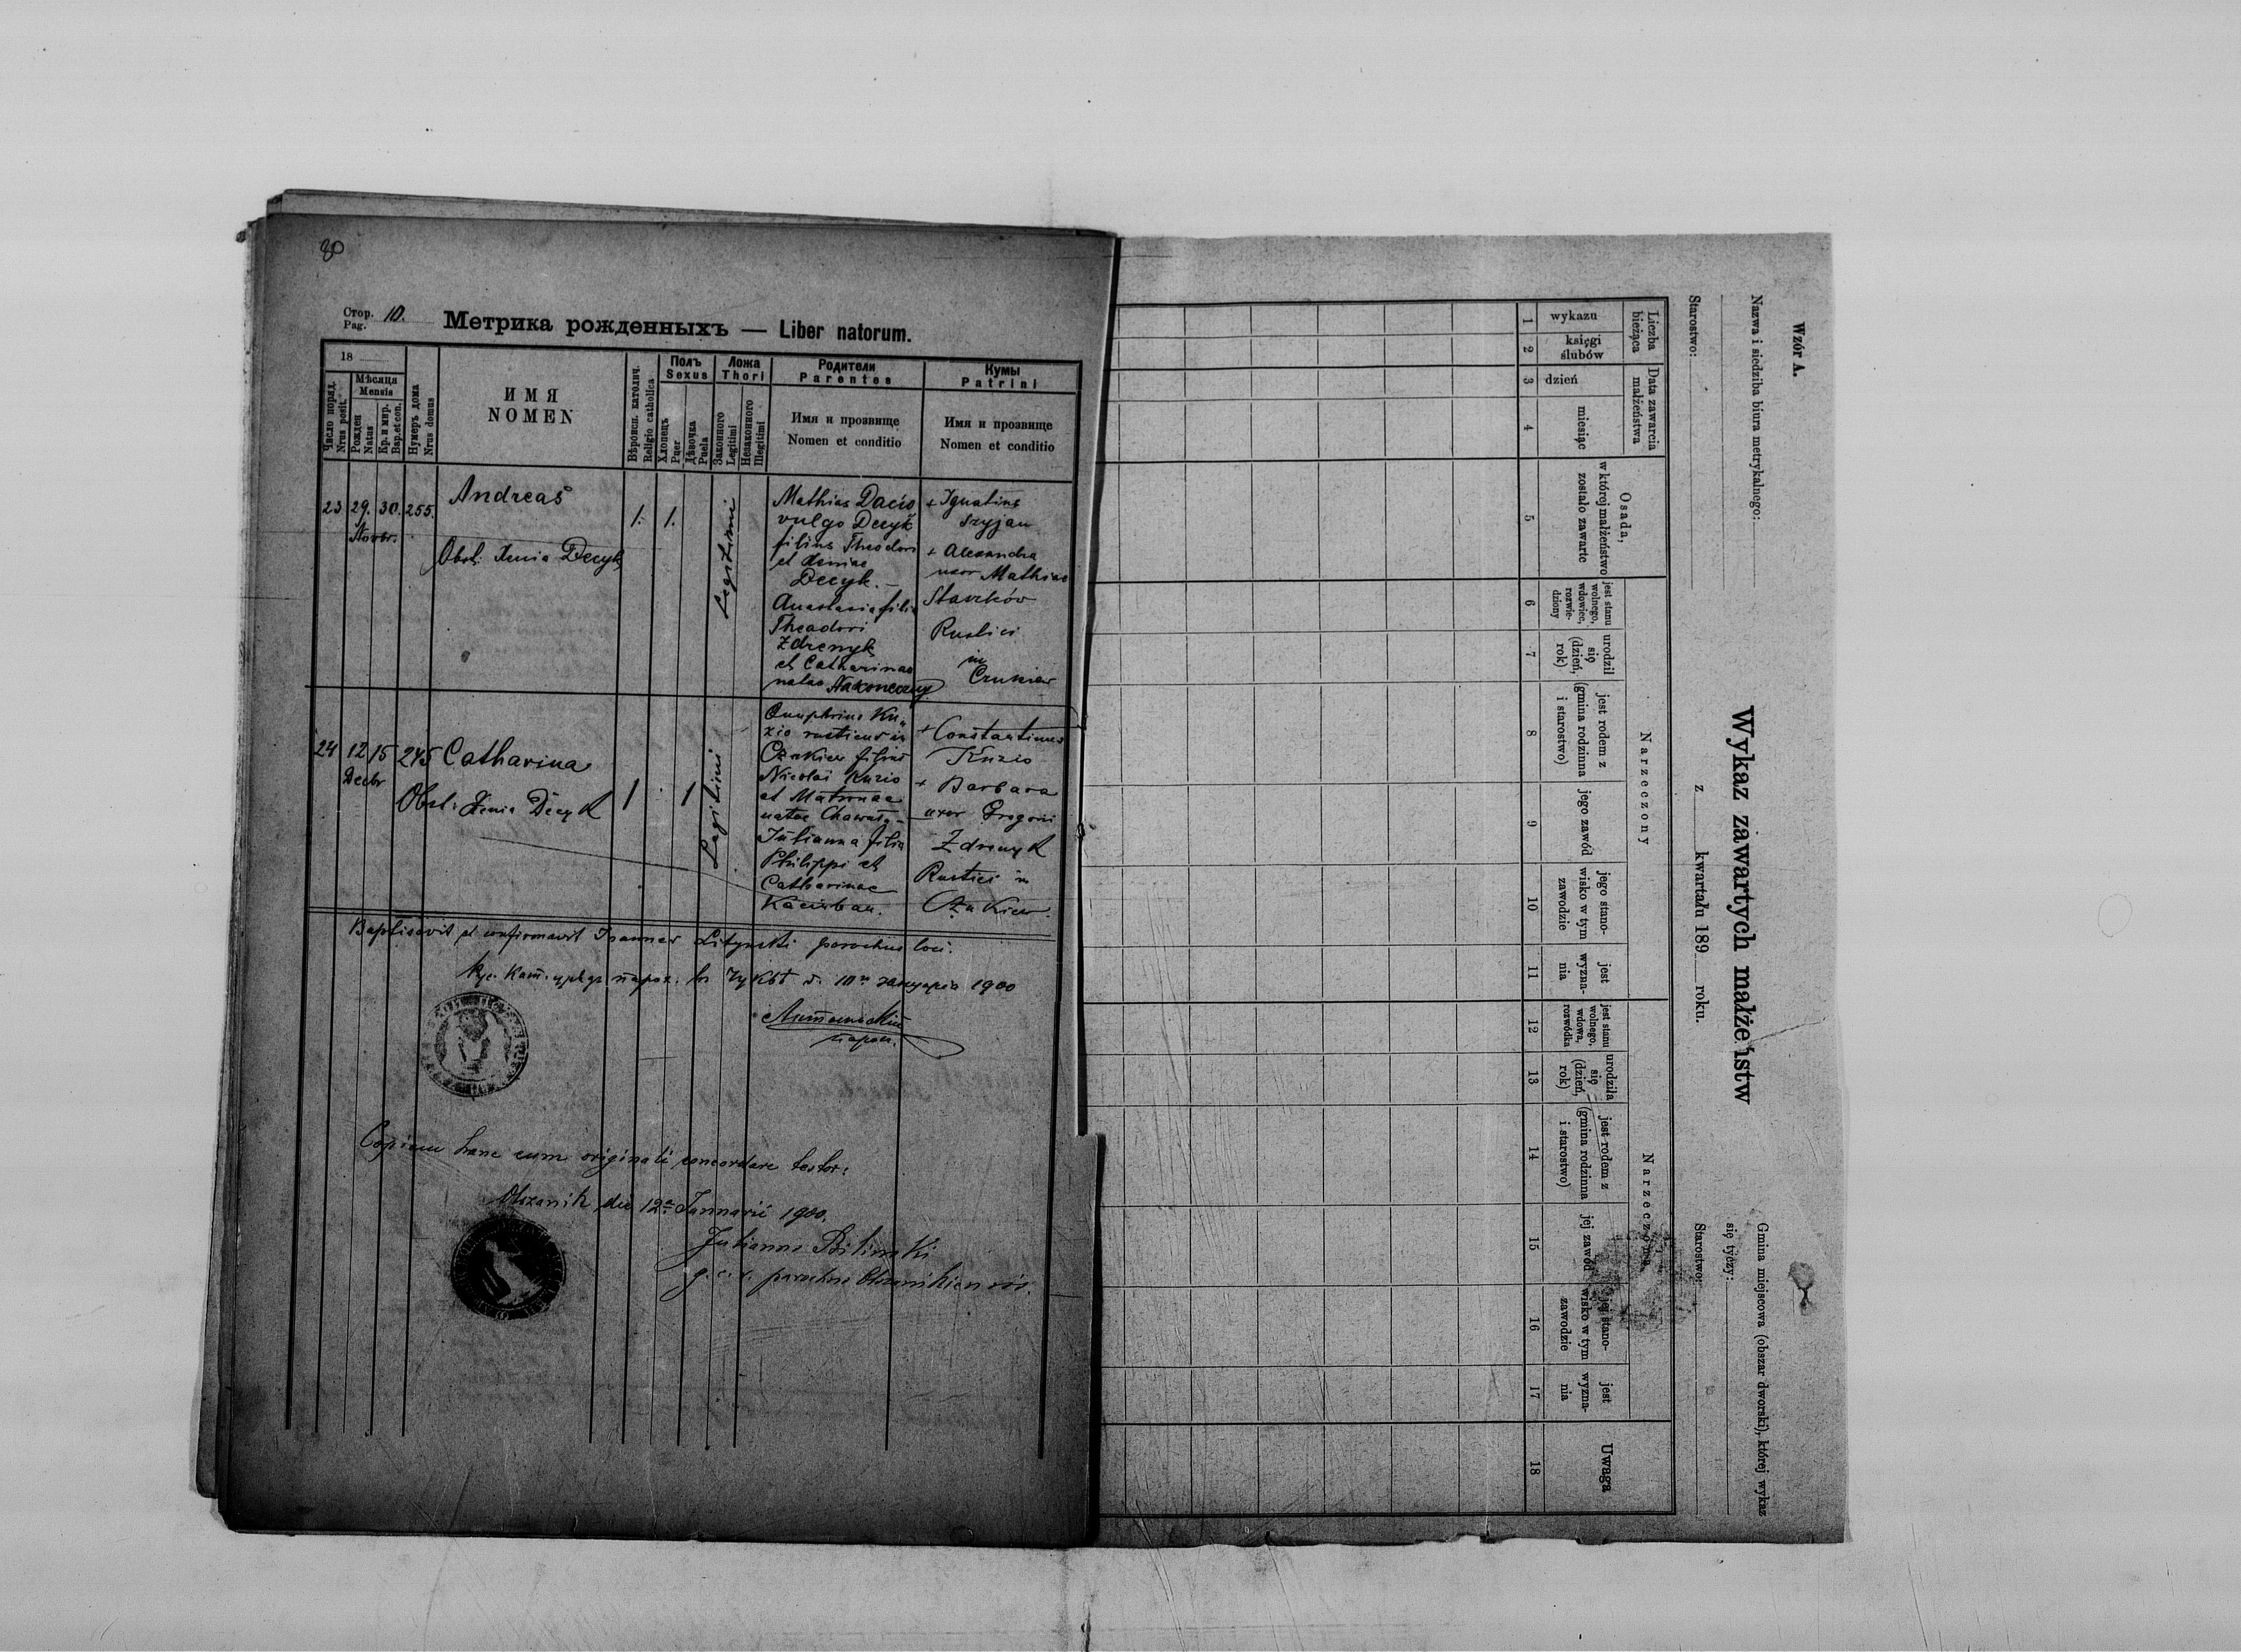 80
Стор. Pag. 10.
Метрика рожденныхъ — Liber natorum.
18
Число поряд. Nrus posit.
Мѣсяца Mensis
Рожден Natus
Кр. и мир. Bap. et con.
Нумеръ дома Nrus domus
ИМЯ
NOMEN
Вѣроисп. католич. Religio catholica
Полъ Sexus
Хлопець Puer
Дѣвочка Puela
Ложа Thori
Законного Legitimi
Незаконного Illegitimi
Родители
Parentes
Имя и прозвище
Nomen et conditio
Кумы
Patrini
Имя и прозвище
Nomen et conditio
23 29. 30. 255.
Novbr.
Andreas
Obst: Xenia Decyk
1. 1.
Legitimi
Mathias Dacio
vulgo Decyk
filius Theodori
et Xeniae
Decyk. —
Anastasia filia
Theodori
Zdrenyk
et Catharinae
natae Nakoneczny
+ Ignatius
Szyjan
+ Alexandra
uxor Mathiae
Starków
Rustici
in
Czukiew
24 12 15 245
Decbr
Catharina
Obst: Xenia Decyk
1 1
Legitimi
Onuphrius Ku-
zio rusticus in
Czukiew filius
Nicolai Kuzio
et Matronae
natae
Julianna filia
Philippi et
Catharinae
+ Constantinus
Kuzio
+ Barbara
uxor Gregorii
Zdrenyk
Rustici in
Czukiew.
Baptisavit et confirmavit Joannes Litynski parochus loci.
1900
Copiam hanc cum originali concordare testor:
Olszanik die 12a Januarii 1900.
Julianus Bilinski
g. c. r. parochus Olszanikiensis.
Wzór A.
Nazwa i siedziba biura metrykalnego:
Starostwo:
Wykaz zawartych małżeństw
z kwartału 189 roku.
Gmina miejscowa (obszar dworski), której wykaz
się tyczy:
Starostwo:
Liczba bieżąca
wykazu
księgi ślubów
Data zawarcia małżeństwa
dzień
miesiąc
Osada,
w której małżeństwo
zostało zawarte
Narzeczony
jest stanu wolnego, wdowiec, rozwiedziony
urodził się (dzień, rok)
jest rodem z (gmina rodzinna i starostwo)
jego zawód
jego stanowisko w tym zawodzie
jest wyznania
Narzeczona
jest stanu wolnego, wdowa, rozwódka
urodziła się (dzień, rok)
jest rodem z (gmina rodzinna i starostwo)
jej zawód
jej stanowisko w tym zawodzie
jest wyznania
Uwaga
1 2 3 4 5 6 7 8 9 10 11 12 13 14 15 16 17 18